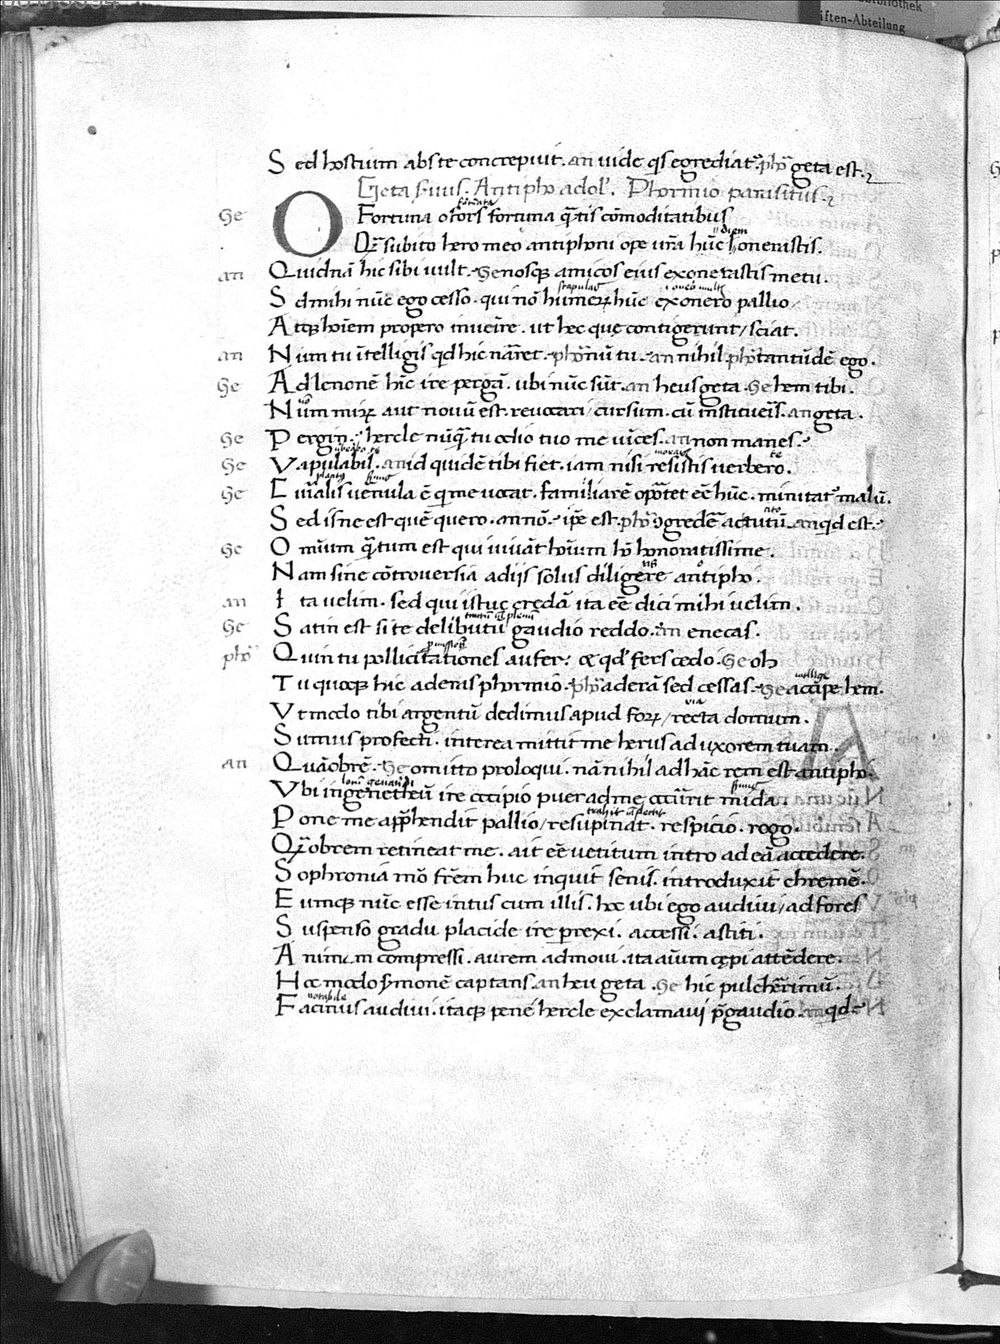 Sed hostium abs te concrepuit. an uide qs egrediat᷑. pho᷑ geta est.
Geta seruus. Antipho adol'. Phormio parasitus.
Ge O Fortuna o fors fortuna q̄tis cōmoditatibus
Q̄ subito hero meo antiphoni ope ur̄a hūc honerastis.
an Quidnā hic sibi uult. Ge nosq; amicos eius exonerastis metu.
Sed mihi nūc ego cesso. qui nō humeꝝ hūc exonero pallio
Atq; hoīem propero inuenire. ut hec que contigerunt/ sciat.
an Num tu ītelligis qd hic narret. pho nū tu. an nihil. pho tantūdē ego.
Ge Ad lenonē hīc ire pergā. ubi nūc sūt. an heus geta. Ge hem tibi.
Num miꝝ aut nouū est. reuocari/ cursum. cū institueris. an geta.
Ge Pergin. hercle nūq̄ tu odio tuo me uīces. an non manes.
Ge Vapulabis. an id quidē tibi fiet. iam nisi resistis uerbero.
Ge familiarē oportet eē hūc. minitat᷑ malū.
Sed isne est quē quero. an nō. ipē est. pho ɔgredē actutū. an qd est.
Ge Omīum q̄tum est qui uiuāt hoīum hō honoratissime.
Nam sine cōtrouersia a dijs solus diligere antipho.
an Ita uelim. sed qui istuc credā ita eē dici mihi uelim.
Ge Satin est si te delibutū gaudio reddo. an enecas.
pho Quin tu pollicitationes aufer: & qd' fers cedo. Ge oh
Tu quoq; hic aderas phormio. pho aderā sed cessas. Ge accipe hem.
Vt modo tibi argentū dedimus apud foꝝ/ recta domum.
Sumus profecti. interea mittit me herus ad uxorem tuam.
an Quāobrē. Ge omitto proloqui. nā nihil ad hāc rem est antipho.
Vbi in genetheū ire occipio puer ad me occurrit mida.
Pone me apphendit pallio/ resupinat. respicio. rogo.
Quobrem retineat me. ait eē uetitum intro ad eā accedere.
Sophronia mō frēm huc inquit senis. introduxit chremē.
Eumq; nūc esse intus cum illis. hoc ubi ego audiui/ ad fores
Suspenso gradu placide ire perrexi. accessi. astiti.
Animam compressi. aurem admoui. ita aīum cepi attēdere.
Hoc modo sermonē captans. an heu geta. Ge hic pulcherrimū.
Facinus audiui. itaq; pene hercle exclamaui p̄ gaudio. an qd